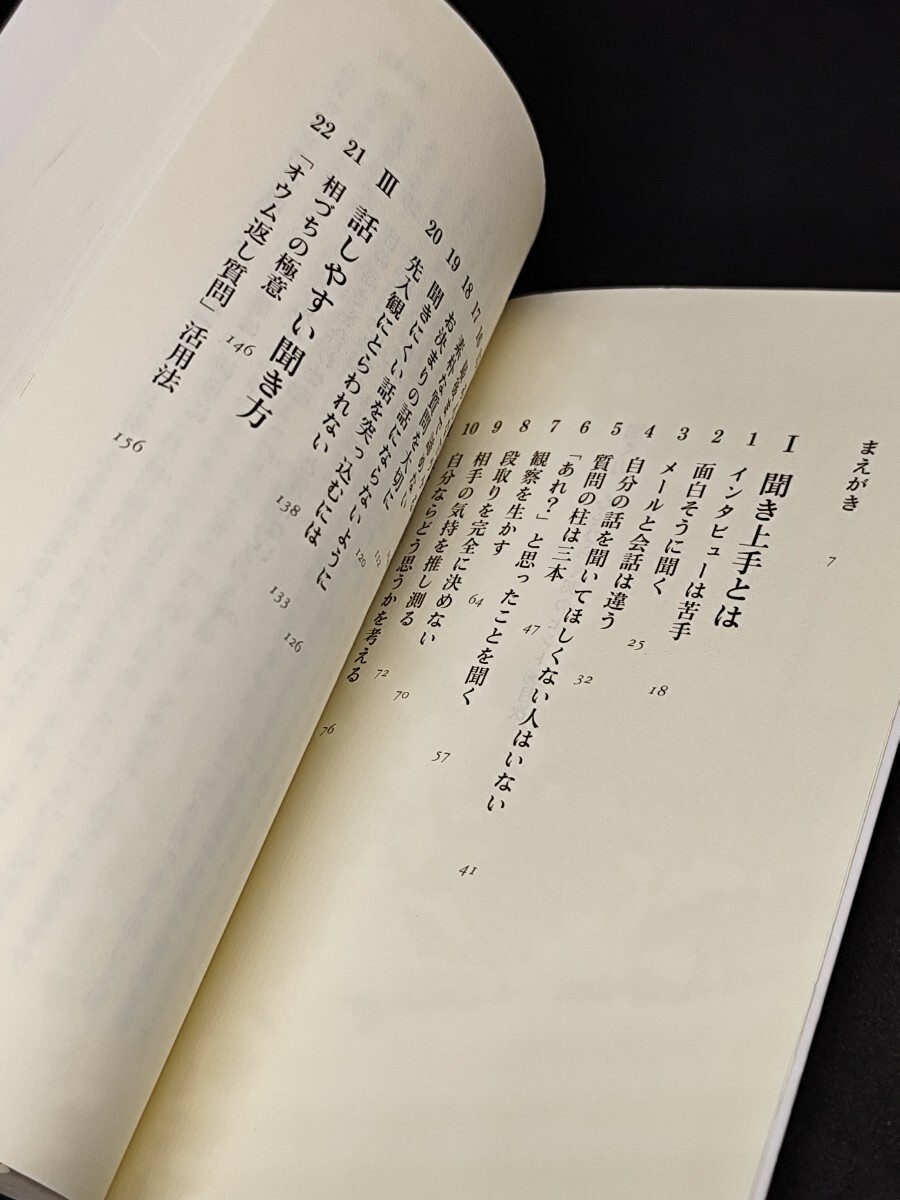 まえがき 7
I 聞き上手とは
1 インタビューは苦手 18
2 面白そうに聞く 25
3 メールと会話は違う 32
4 自分の話を聞いてほしくない人はいない 41
5 質問の柱は三本 47
6 「あれ?」と思ったことを聞く 57
7 観察を生かす 64
8 段取りを完全に決めない 70
9 相手の気持を推し測る 72
10 自分ならどう思うかを考える 76
17 素朴な質問を大切に 120
18 お決まりの話にならないように 126
19 聞きにくい話を突っ込むには 133
20 先入観にとらわれない 138
III 話しやすい聞き方
21 相づちの極意 146
22 「オウム返し質問」活用法 156